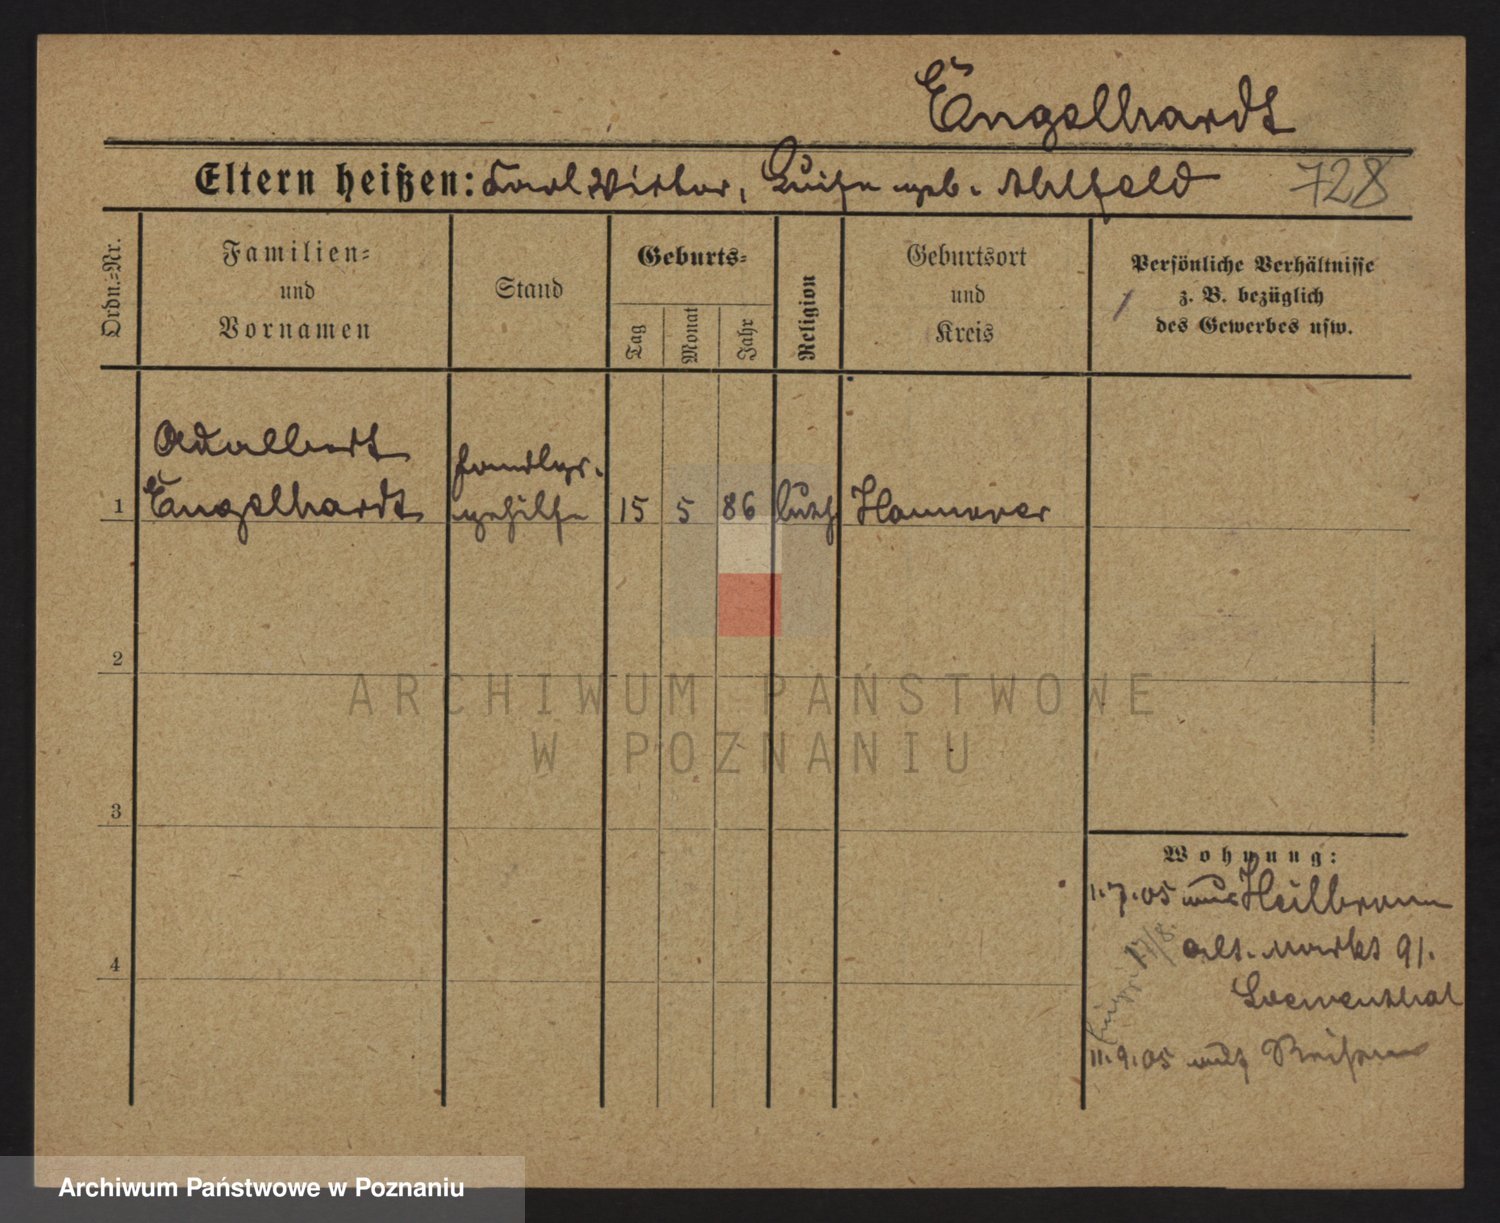 Engelhardt
Eltern heißen: Karl Viktor, Luise geb. Ahlfeld 728
Ordn.-Nr.
Familien-
und
Vornamen
Stand
Geburts-
Tag
Monat
Jahr
Religion
Geburtsort
und
Kreis
Persönliche Verhältnisse
z. B. bezüglich
des Gewerbes usw.
Adalbert
Engelhardt
Handlgs.
gehilfe
1
15 5 86 luth Hannover
2
3
4
Wohnung:
1.7.05 aus Heilbronn
17/8.
alt. Markt 91.
Loewenthal
11.9.05 auf Reisen
ARCHIWUM PAŃSTWOWE
W POZNANIU
Archiwum Państwowe w Poznaniu